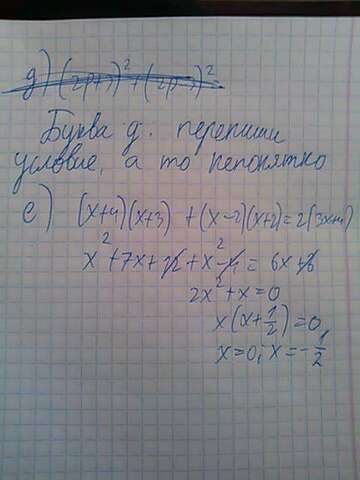 д) (2p+3)² + (2p-3)²
Буква д. перепиши
условие, а то непонятно
е) (x+4)(x+3) + (x-2)(x+2)=2(3x+4)
x²+7x+12+x²-4 = 6x+8
2x²+x=0
x(x+1/2)=0,
x=0; x=-1/2